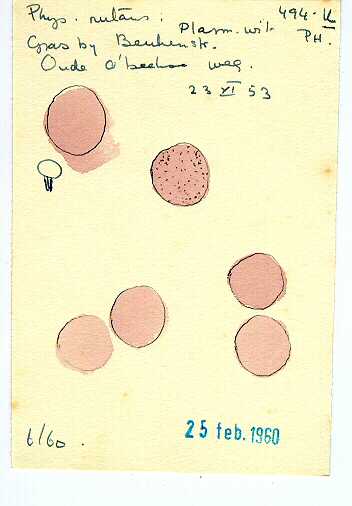 Phys. nutans: Plasm. wit 494-V
Gras by Beukenstr. PH.
Oude weg.
23 XI 53
6/60.
25 feb. 1960